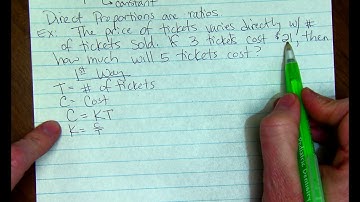 constant
Direct Proportions are ratios
Ex: The price of tickets varies directly w/ #
of tickets sold. If 3 tickets cost $21, then
how much will 5 tickets cost?
1st Way
T = # of tickets
C = Cost
C = KT
K = C/T